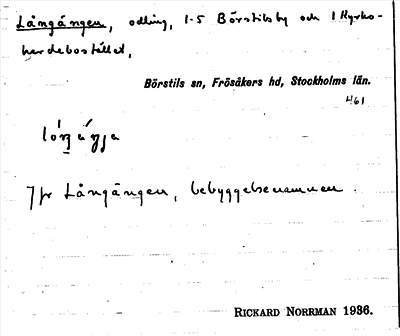 Långängen, odling, 1-5 Börstilsby och 1 Kyrko-
herdebostället,
Börstils sn, Frösåkers hd, Stockholms län.
461
Jfr Långängen, bebyggelsenamnen.
RICKARD NORRMAN 1936.